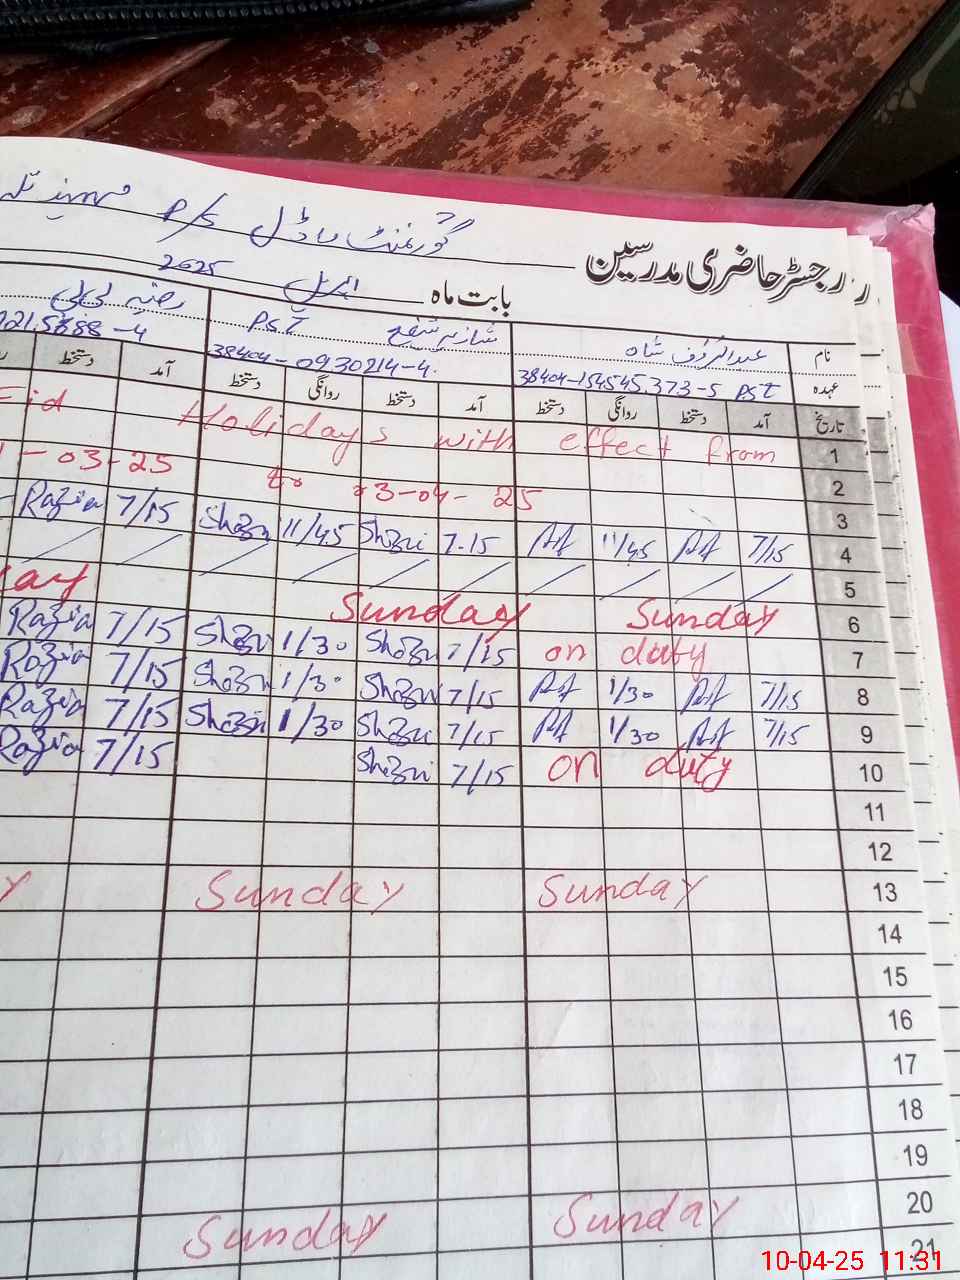 رجسٹر حاضری مدرسین گورنمنٹ ماڈل P/S
بابت ماہ اپریل 2025
نام عبدالرؤف شاہ شازیہ شفیع رضیہ بی بی
عہدہ PST PST
38404-154545373-5 38404-0930214-4
تاریخ آمد دستخط روانگی دستخط آمد دستخط روانگی دستخط آمد دستخط
1 Eid Holidays with effect from
2 -03-25 to 3-04-25
3
4 7/15 11/45 7.15 Shazu 11/45 Shazu 7/15 Razia
5
6 Sunday Sunday ay
7 on duty 7/15 Shazu 1/30 Shazu 7/15 Razia
8 7/15 1/30 7/15 Shazu 1/30 Shazu 7/15 Razia
9 7/15 1/30 7/15 Shazu 1/30 Shazu 7/15 Razia
10 on duty 7/15 Shazu 7/15 Razia
11
12
13 Sunday Sunday y
14
15
16
17
18
19
20 Sunday Sunday
21
10-04-25 11:31